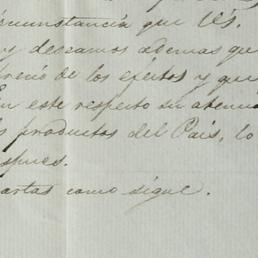 circunstancia que Us.
y deseamos ademas que
de los efectos y que
En este respecto sin
productos del Pais, lo
cartas como sigue.